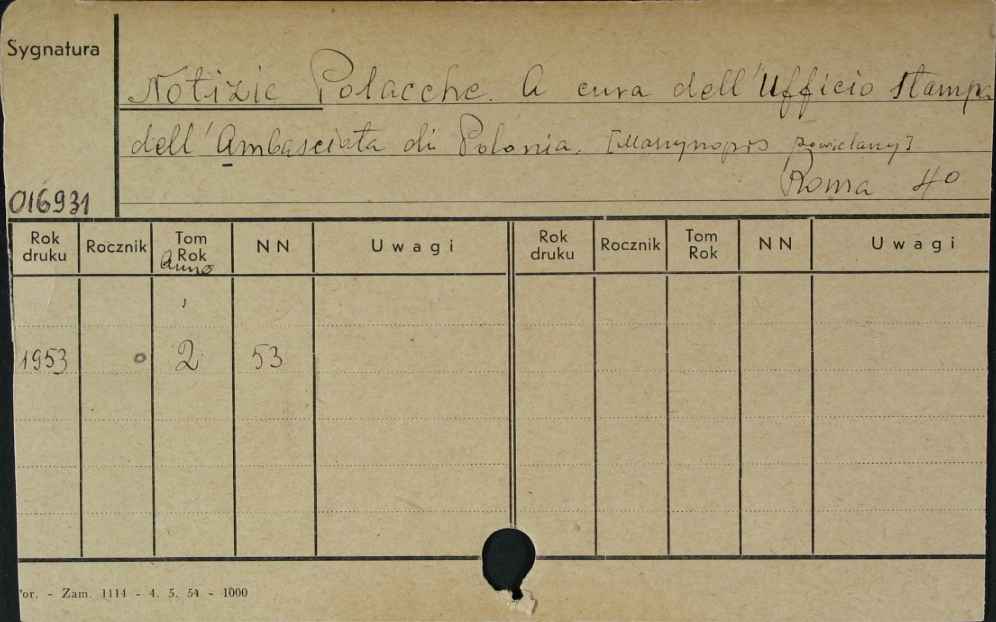 Sygnatura
Notizie Polacche. A cura dell'Ufficio Stampa
dell'Ambasciata di Polonia. [Maszynopis powielany]
Roma 4°
016931
Rok druku Rocznik Tom Rok NN Uwagi Rok druku Rocznik Tom Rok NN Uwagi
Anno
1953 2 53
or. - Zam. 1114 - 4. 5. 54 - 1000